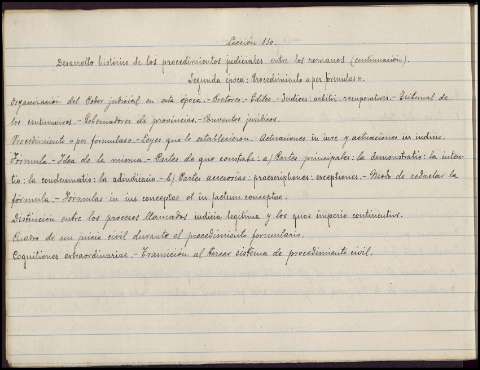 Lección 110.
Desarrollo histórico de los procedimientos judiciales entre los romanos (continuación).
Segunda época: Procedimiento "per formulas".
Organización del Poder judicial en esta época.- Pretores.- Ediles.- Indices arbitri, recuperatores.- Tribunal de
los centumviros.- Gobernadores de provincias.- Conventus juridicus.
Procedimiento "per formulas".- Leyes que lo establecieron. Actuaciones in iure y actuaciones in indicio.
Fórmula.- Idea de la misma.- Partes de que constaba: a) Partes principales: la demonstratio: la inten-
tio: la condemnatio: la adindicatio.- b) Partes accesorias: praescriptiones: exceptiones.- Modo de redactar la
fórmula.- Formulas in ius conceptas et in factum conceptas.
Distinción entre los procesos llamados iudicia legitima y los quas imperio continentur.
Cuadro de un juicio civil durante el procedimiento formulario.
Cognitiones extraordinarias.- Transición al tercer sistema de procedimiento civil.